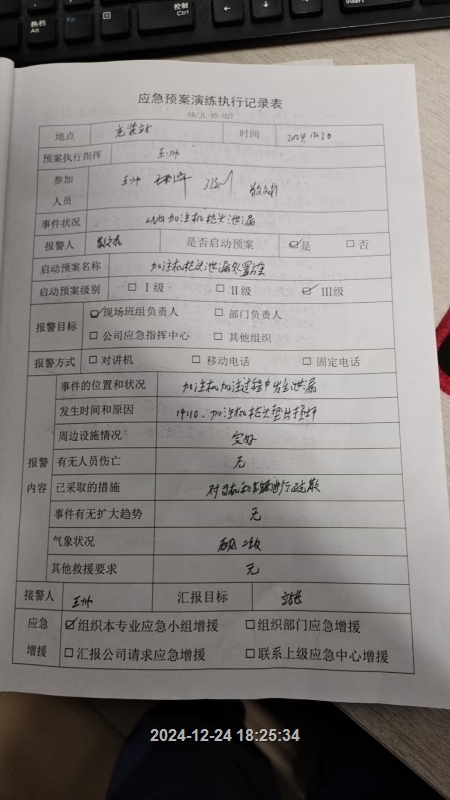 换档
Alt
控制
Ctrl
Insert
应急预案演练执行记录表
SR/JL-YS-027
地点 充装站 时间 2024.12.20
预案执行指挥 王帅
参加
人员 王帅
事件状况 LNG加注机枪头泄漏
报警人 是否启动预案 ☑是 □否
启动预案名称 加注机枪头泄漏处置
启动预案级别 □Ⅰ级 □Ⅱ级 ☑Ⅲ级
报警目标 ☑现场班组负责人 □部门负责人
□公司应急指挥中心 □其他组织
报警方式 □对讲机 □移动电话 □固定电话
报警
内容
事件的位置和状况 加注机加注过程中发生泄漏
发生时间和原因 加注机枪头垫片损坏
周边设施情况 完好
有无人员伤亡 无
已采取的措施 进行疏散
事件有无扩大趋势 无
气象状况 西风 二级
其他救援要求 无
接警人 王帅 汇报目标 站长
应急
增援
☑组织本专业应急小组增援 □组织部门应急增援
□汇报公司请求应急增援 □联系上级应急中心增援
2024-12-24 18:25:34